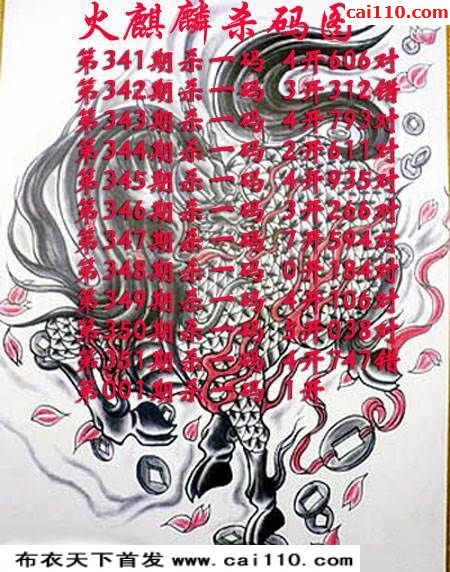 cai110.com
火麒麟杀码图
第341期杀一码 4开606对
第342期杀一码 3开312错
第343期杀一码 4开793对
第344期杀一码 2开611对
第345期杀一码 4开935对
第346期杀一码 3开266对
第347期杀一码 7开594对
第348期杀一码 0开184对
第349期杀一码 4开106对
第350期杀一码 5开038对
第351期杀一码 4开747错
第001期杀一码 1开
布衣天下首发 www.cai110.com